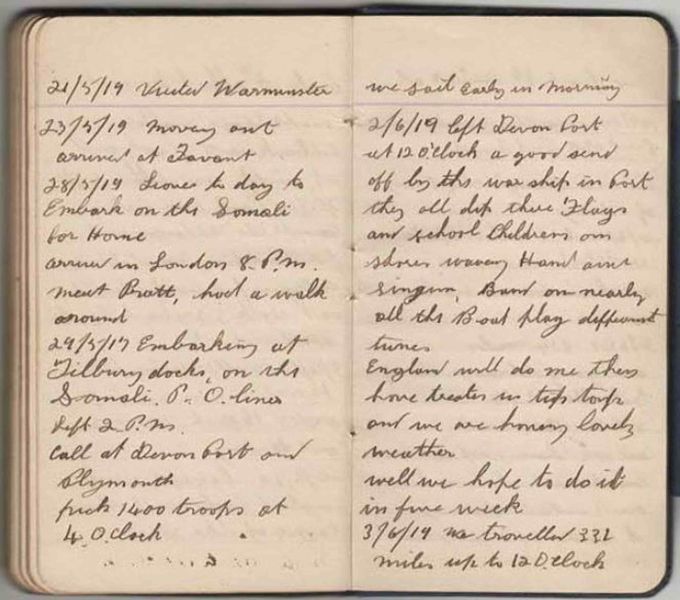 21/5/19 Visited Warminster
23/5/19 Moveing out
arrived at Fovant
28/5/19 Leave to day to
Embark on the Somali
for Home
arrived in London 8. P.M.
meat Pratt, had a walk
around
29/5/19 Embarking at
Tilbury docks, on the
Somali. P. O. lines
Left 2 P.M.
Call at Devon Port and
Plymouth
pick 1400 troops at
4. O.Clock
we sail early in morning
2/6/19 left Devon Port
at 12 O'Clock a good send
off by the war ship in Port
they all dip there Flags
and school Childrens on
shores waveing Hand and
singing, Band on nearly
all the Boat play different
tunes
England will do me they
have treated us tip top
and we are having lovely
weather
well we hope to do it
in five week
3/6/19 we travelled 332
miles up to 12 O.Clock